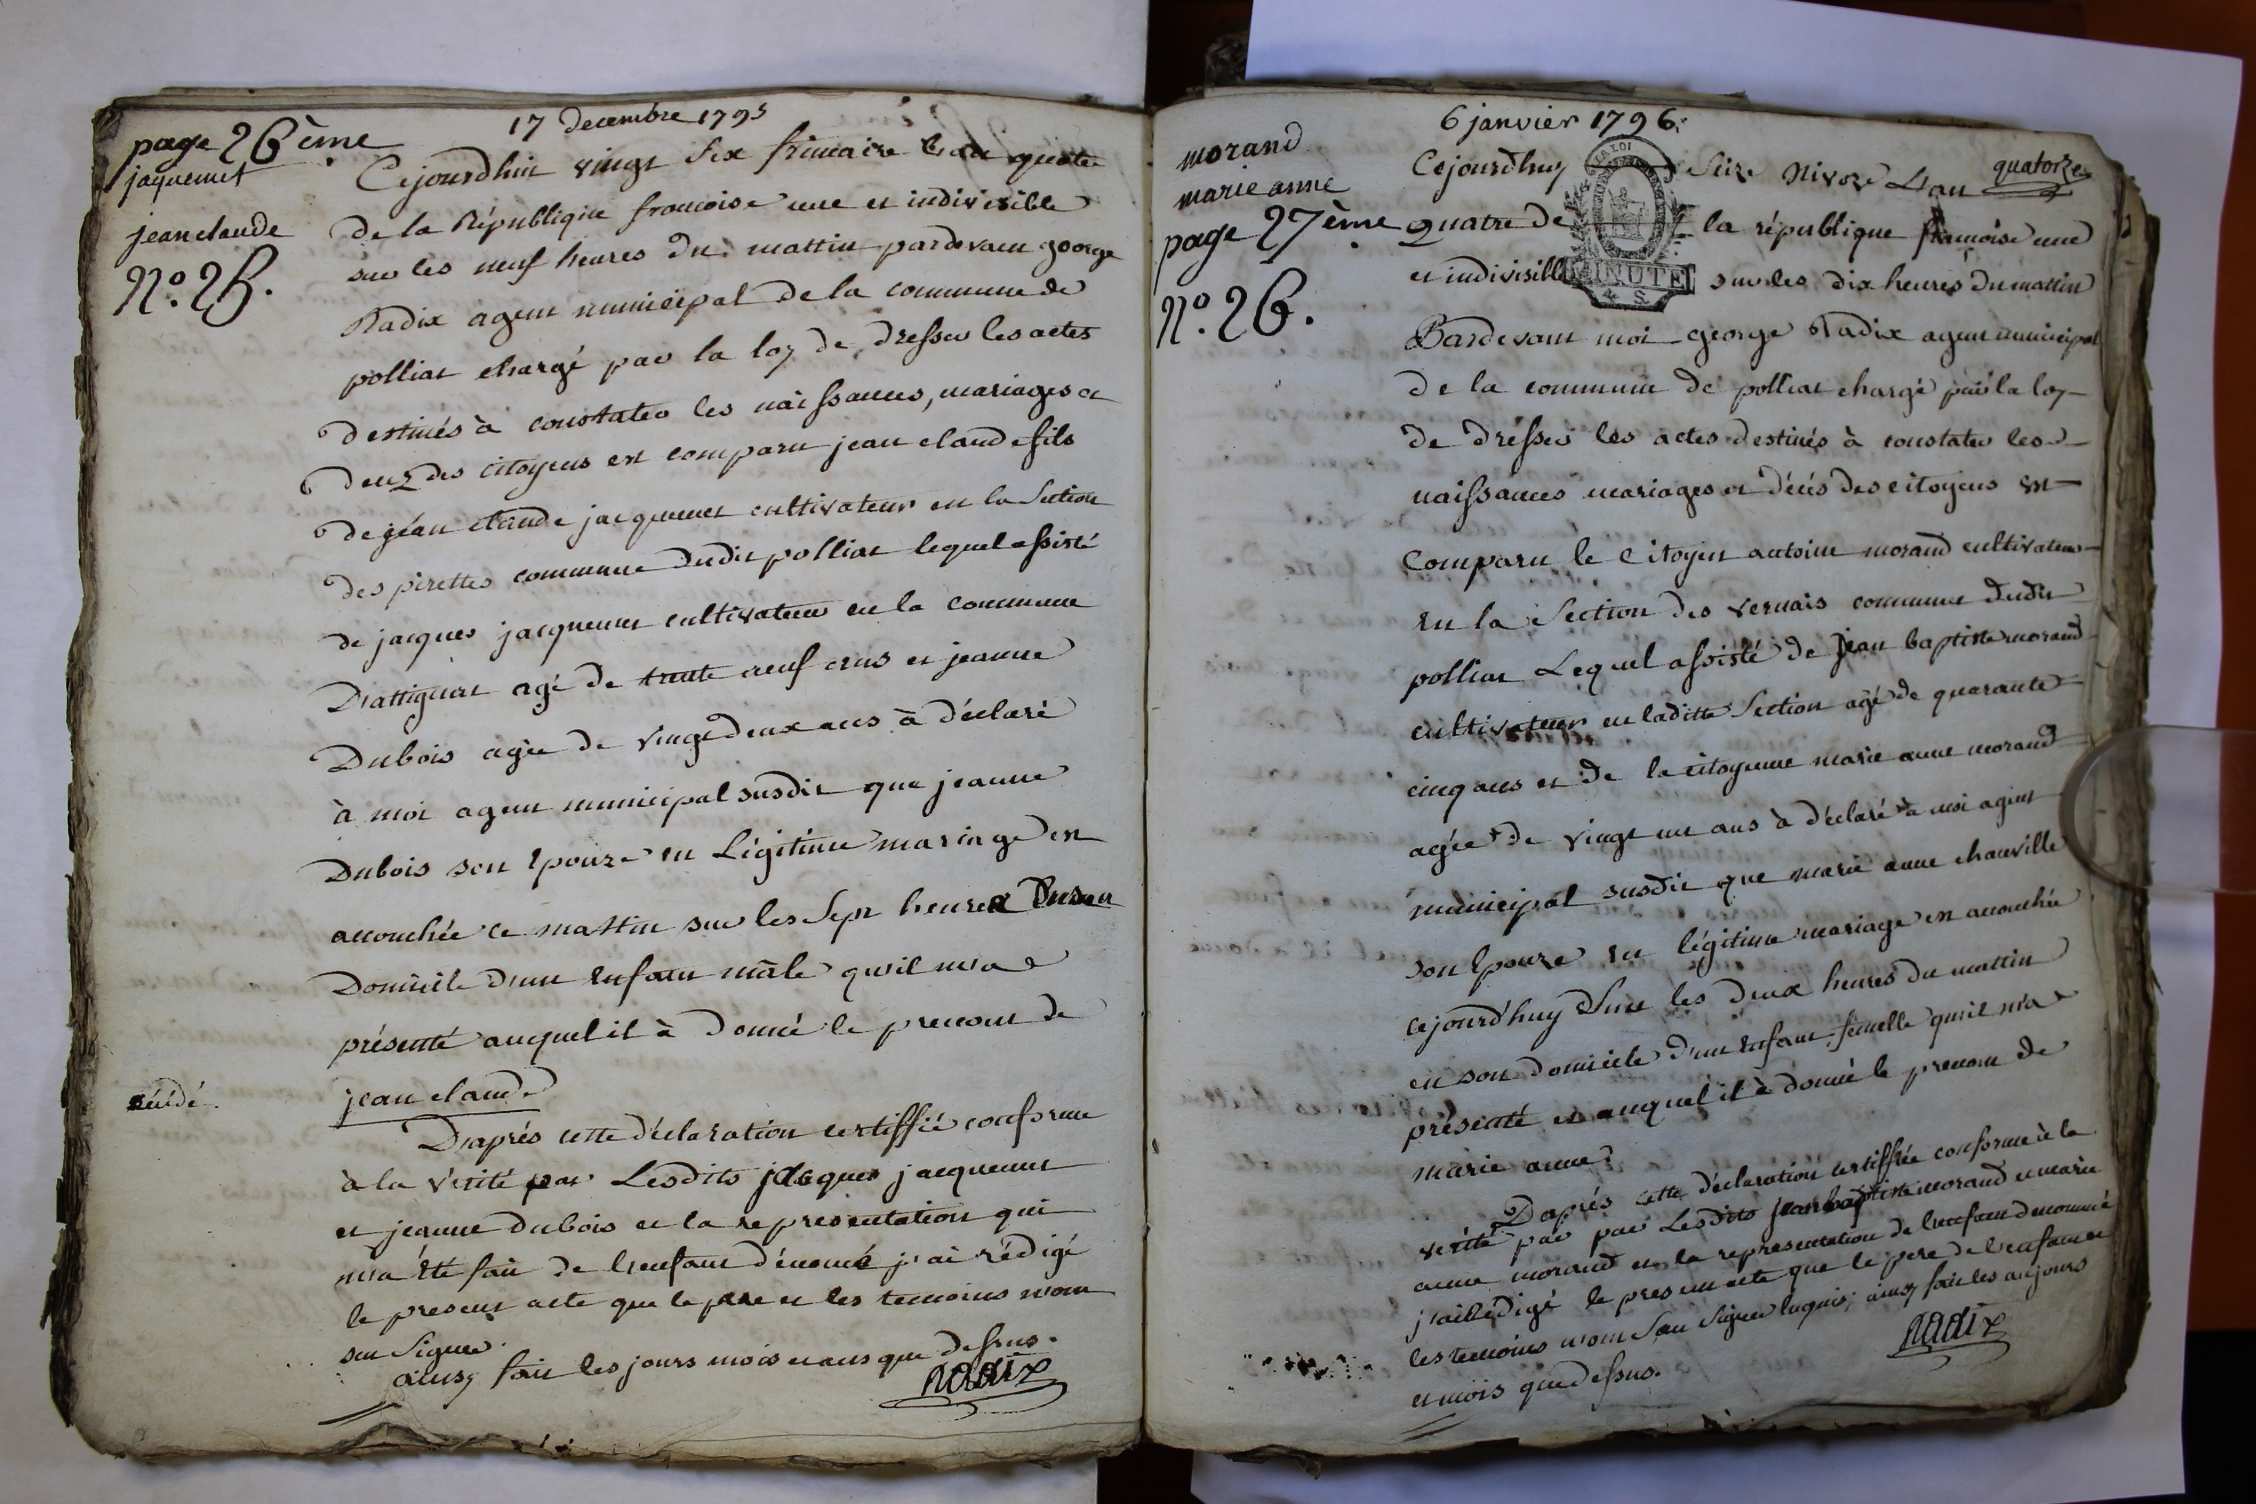 17 decembre 1795
page 26ème
jaquemet
jean claude
N.º 25.
Cejourdhui vingt six frimaire l'an quatre
de la République francoise une et indivisible
sur les neuf heures du mattin pardevant george
Radix agent municipal de la commune de
polliat chargé par la loy de dresser les actes
destinés à constater les naissances, mariages et
deces des citoyens est comparu jean claude fils
de jéan claude jacquemet cultivateur en la Section
des pirettes commune dudit polliat lequel assisté
de jacques jacquemet cultivateur en la commune
D'attignat agé de trente neuf ans et jeanne
Dubois agée de vingt deux ans à déclaré
à moi agent municipal susdit que jeanne
Dubois son Epouze en Légitime mariage est
accouchée ce mattin sur les Sept heures en son
Domicile d'un Enfant mâle qu'il m'a
présenté auquel il à donné le prenom de
jean claude
décédé.
D'aprés cette déclaration certiffié conforme
à la vérité par Lesdits jacques jacquemet
et jeanne dubois et la representation qui
m'a été fait de l'enfant dénomé j'ai rédigé
le present acte que le pere et les temoins n'ont
su Signer.
ainsy fait les jours mois et ans que dessus.
Radix
6 janvier 1796.
morand
marie anne
page 27ème
N.º 26.
LA LOI
MINUTE
S.
quatorze
Cejourdhuy Seize Nivoze L'an
quatre de la république francoise une
et indivisible sur les dix heures du mattin
Pardevant moi george Radix agent municipal
de la commune de polliat chargé par la loy
de drésser les actes destinés à constater les
naissances mariages et décés des citoyens est
Comparu le Citoyen antoine morand cultivateur
En la Section des vernais commune dudit
polliat Lequel assisté de jean baptiste morand
cultivateur en laditte Section agé de quarante
cinq ans et de la citoyenne marie anne morand
agée de vingt un ans à déclaré à moi agent
municipal susdit que marie anne chanville
son Epouze en légitime mariage est accouchée
cejourd'huy sur les deux heures du mattin
en son domicile d'un Enfant femelle qu'il m'a
présenté et auquel il à donné le prenom de
marie anne
D'aprés cette déclaration certiffiée conforme à la
verité par par Lesdits jean baptiste morand et marie
anne morand et la representation de l'enfant denommé
j'ai Rédigé le present acte que le pere de l'enfant et
les temoins n'ont Sçu Signer Requis; ainsy fait les an jours
et mois que dessus.
Radix